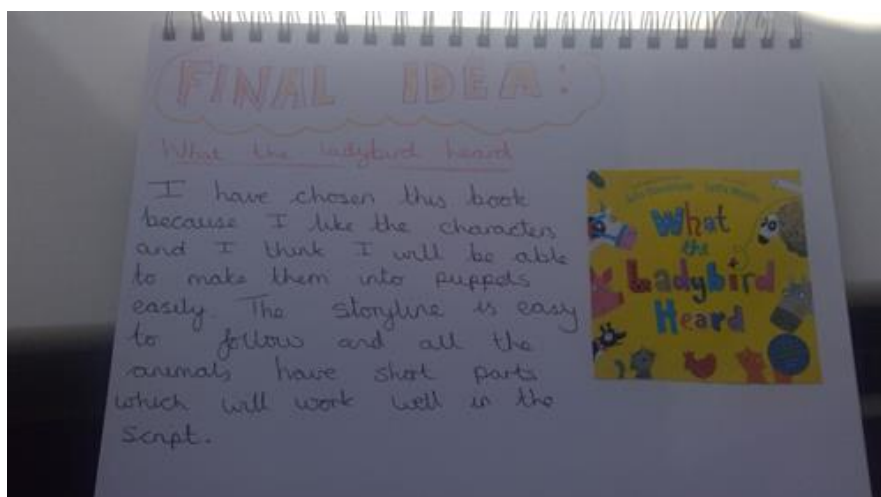 FINAL IDEA:
What the ladybird heard
I have chosen this book
because I like the characters
and I think I will be able
to make them into puppets
easily. The storyline is easy
to follow and all the
animals have short parts
which will work well in the
script.
What
the
Ladybird
Heard